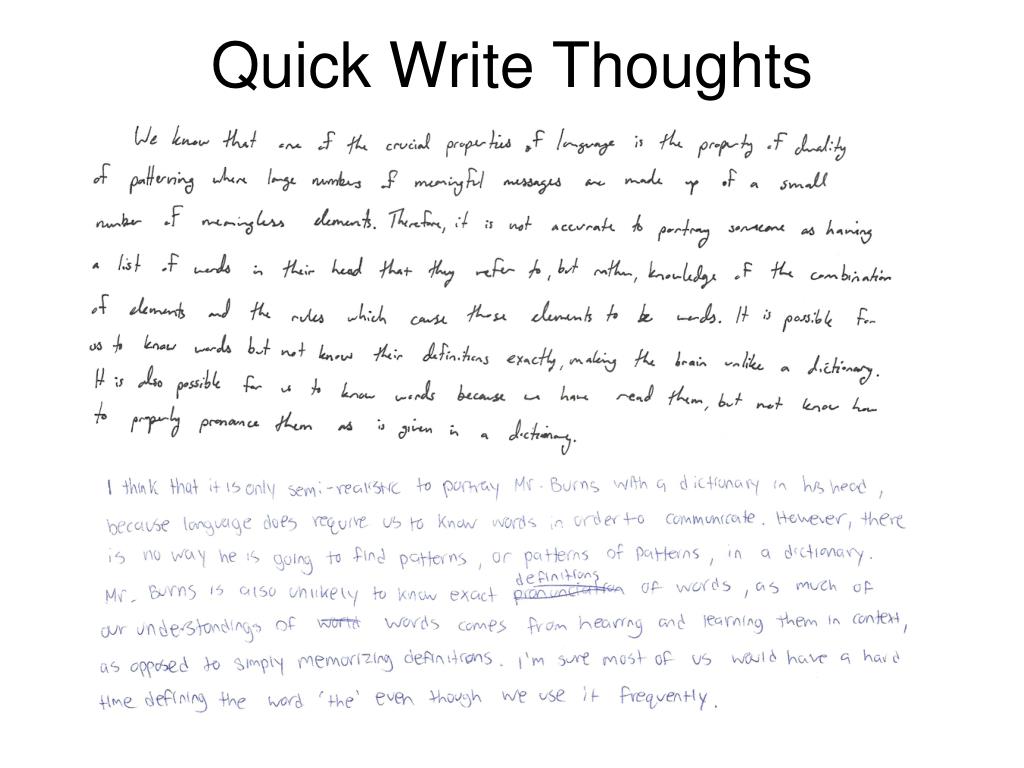 Quick Write Thoughts
We know that one of the crucial properties of language is the property of duality
of patterning where large numbers of meaningful messages are made up of a small
number of meaningless elements. Therefore, it is not accurate to portray someone as having
a list of words in their head that they refer to, but rather, knowledge of the combination
of elements and the rules which cause those elements to be words. It is possible for
us to know words but not know their definitions exactly, making the brain unlike a dictionary.
It is also possible for us to know words because we have read them, but not know how
to properly pronance them as is given in a dictionary.
I think that it is only semi-realistic to portray Mr. Burns with a dictionary in his head,
because language does require us to know words in order to communicate. However, there
is no way he is going to find patterns, or patterns of patterns, in a dictionary.
definitions
Mr. Burns is also unlikely to know exact pronunciation of words, as much of
our understandings of world words comes from hearing and learning them in context,
as opposed to simply memorizing definitions. I'm sure most of us would have a hard
time defining the word 'the' even though we use it frequently.